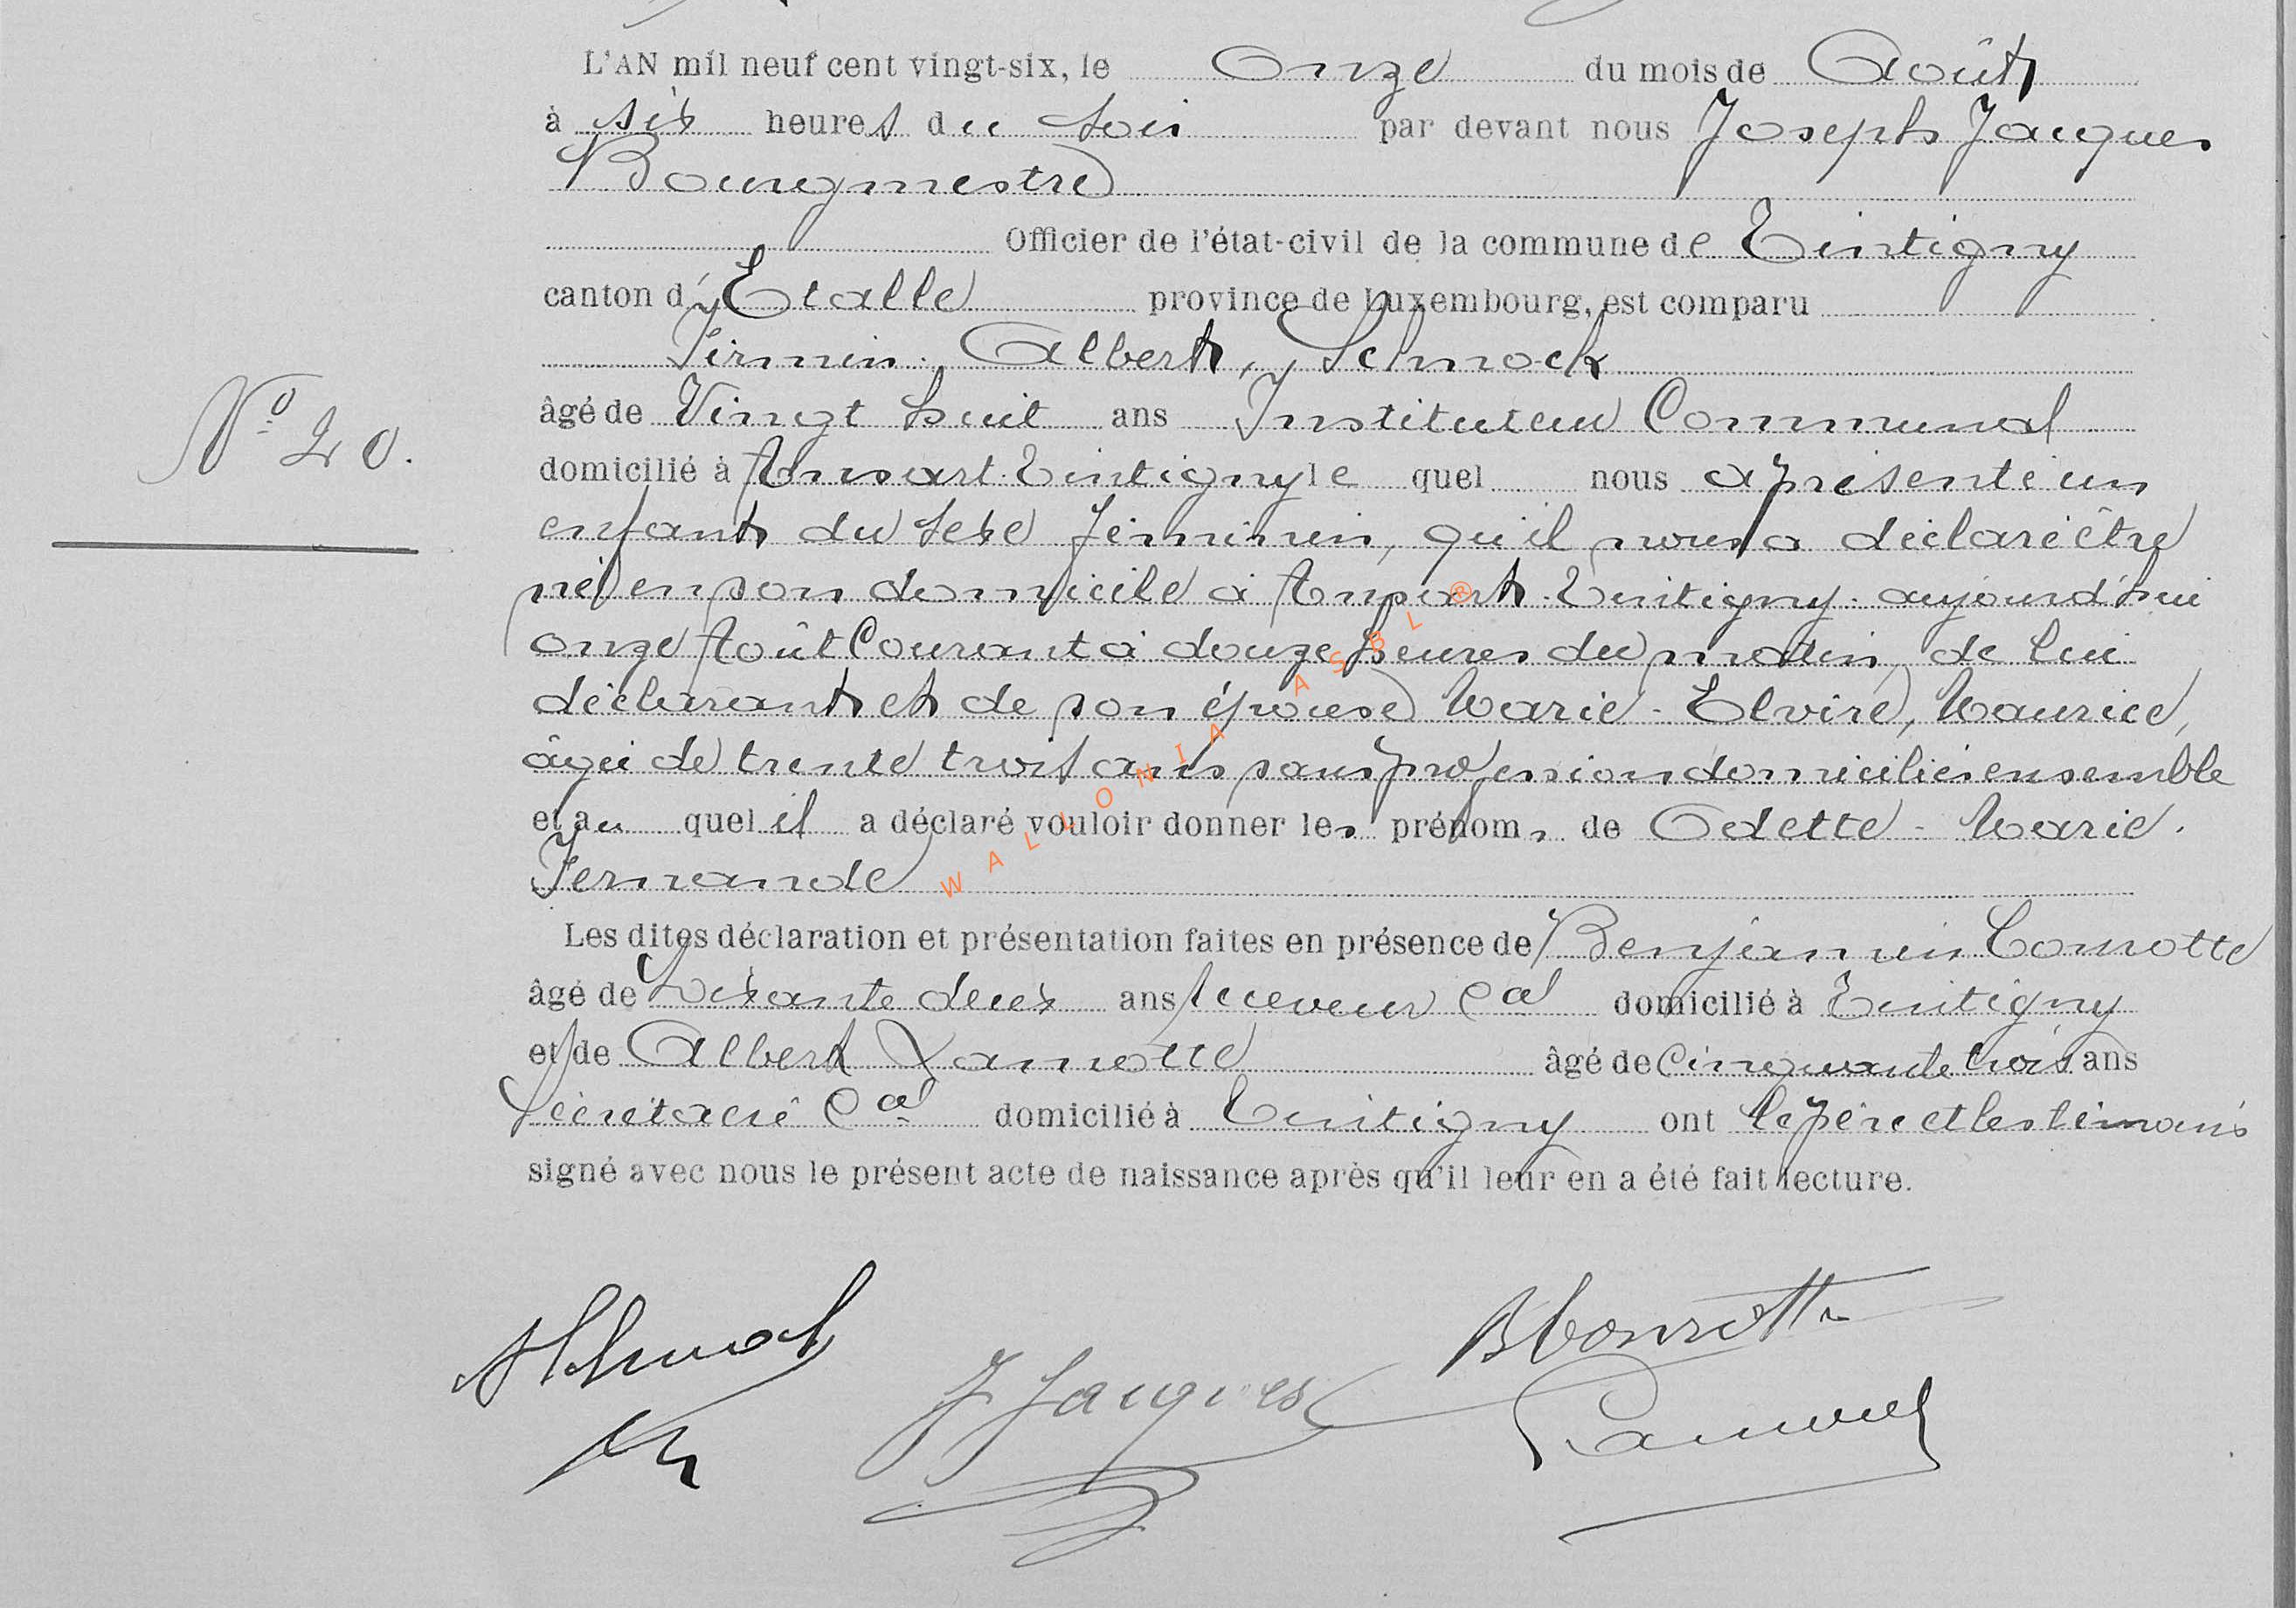 L'AN mil neuf cent vingt-six, le onze du mois de Août
à six heures du soir par devant nous Joseph Jacques
Bourgmestre
Officier de l'état-civil de la commune de Tintigny
canton d'Etalle province de Luxembourg, est comparu
Firmin. Albert, Schmock
âgé de Vingt huit ans Instituteur Communal
N° 20.
domicilié à Ansart-Tintigny le quel nous a présenté un
enfant du sexe féminin, qu'il nous a déclaré être
né en son domicile à Ansart-Tintigny aujourd'hui
onze Août Courant à douze heures du matin, de lui
déclarant et de son épouse Marie-Elvire, Maurice,
âgée de trente trois ans sans profession domiciliés ensemble
et au quel il a déclaré vouloir donner les prénoms de Odette-Marie.
Fernande
Les dites déclaration et présentation faites en présence de Benjamin Connotte
âgé de Soixante deux ans receveur cal domicilié à Tintigny
et de Albert Lamotte âgé de cinquante trois ans
Secrétaire cal domicilié à Tintigny ont le père et les témoins
signé avec nous le présent acte de naissance après qu'il leur en a été fait lecture.
ASchmock
J Jacques
B Connotte
WALLONIA ASBL ®